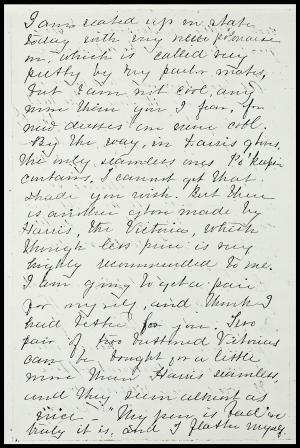 I am seated up in state
today with my new polonaise
on, which is called very
pretty by my parlor mates,
but I am not cool, any
more than you I fear, for
new dresses are never cool.
By the way, in Harris gloves,
the only seamless ones
curtains. I cannot get that
shade you wish. But there
is another glove made by
Harris, the Victoria, which
though less price is very
highly recommended to me.
I am going to get a pair
for myself, and think I
had better for you. Two
pair of two buttoned Victorias
can be bought for a little
more than Harris seamless,
and they seem almost as
nice - "My pen is bad" 
truly it is, and I flatter myself